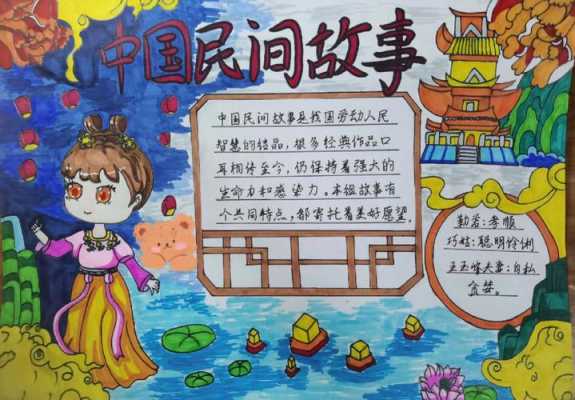 中国民间故事
中国民间故事是我国劳动人民
智慧的结晶，很多经典作品口
耳相传至今，仍保持着强大的
生命力和感染力。本组故事有
个共同特点，都寄托着美好愿望。
勤若：孝顺
巧姑：聪明伶俐
夫妻：自私
贪婪。